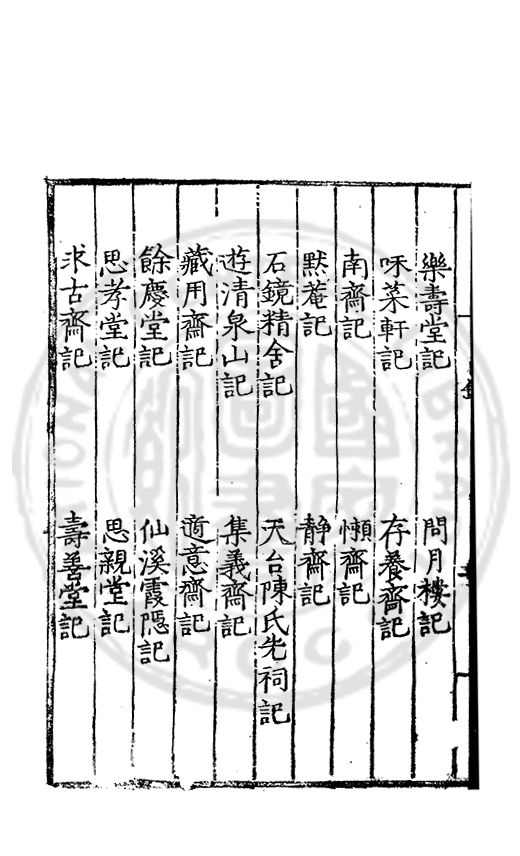 樂壽堂記　問月樓記
味菜軒記　存養齋記
南齋記　懶齋記
默菴記　靜齋記
石鏡精舍記　天台陳氏先祠記
遊清泉山記　集義齋記
藏用齋記　適意齋記
餘慶堂記　仙溪霞隱記
思孝堂記　思親堂記
求古齋記　壽善堂記